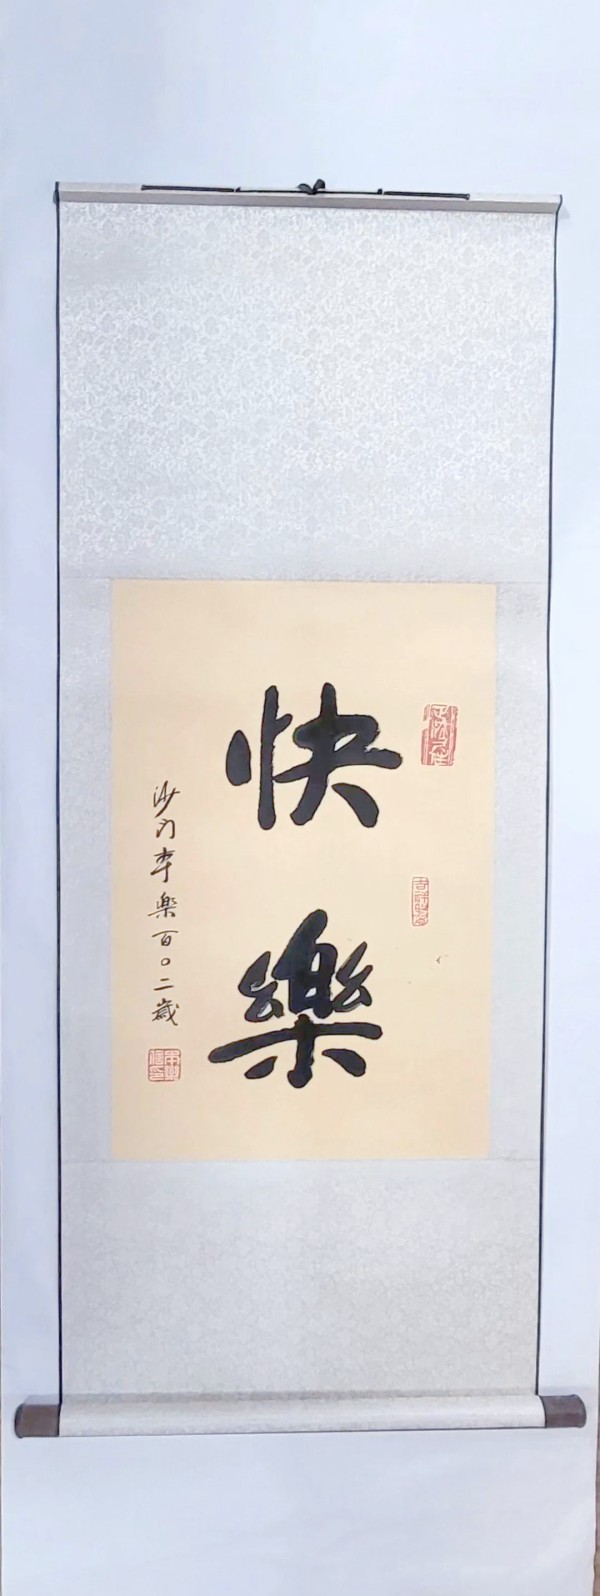 快樂
沙门本樂百〇二歲